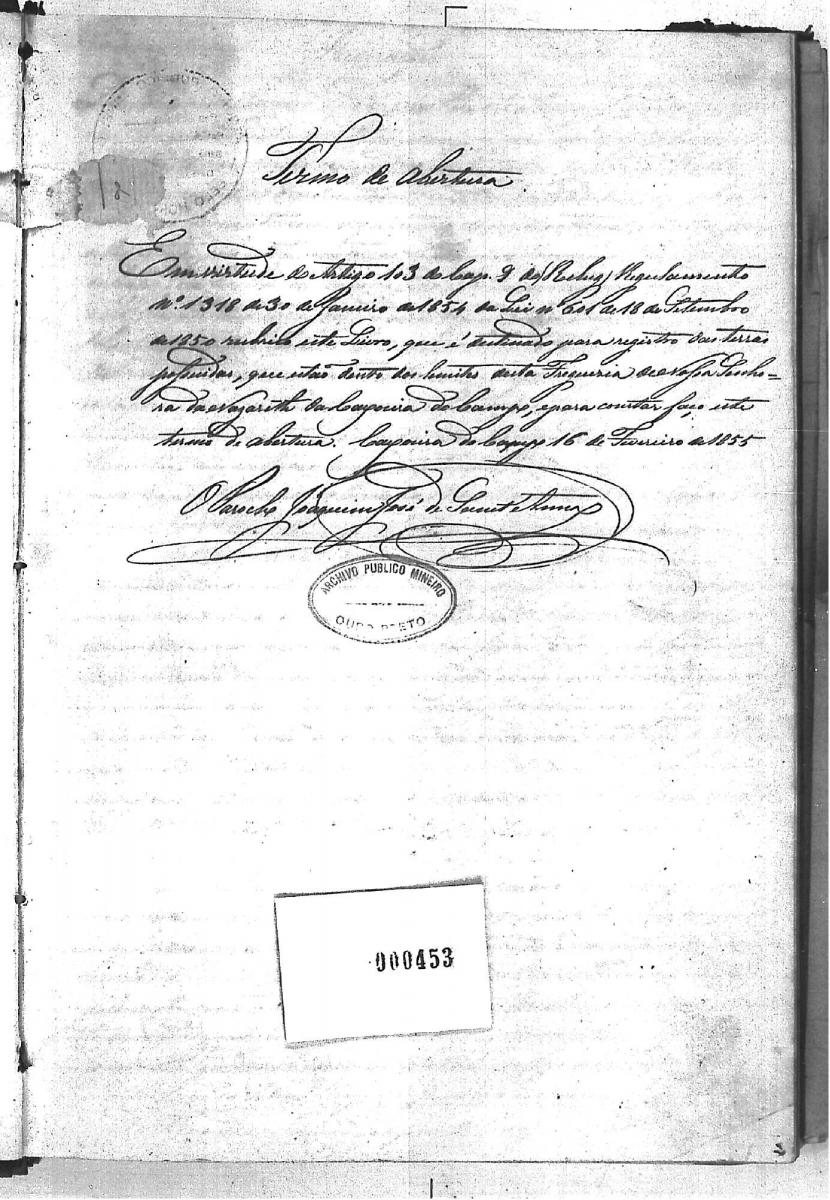 Termo de abertura
Em virtude do Artigo 103 do Cap. 9 do Regulamento
nº 1318 de 30 de Janeiro de 1854 da Lei nº 601 de 18 de Setembro
de 1850 rubrico este Livro, que é destinado para registro das terras
possuidas, que estaõ dentro dos limites desta Freguezia de Nossa Senho-
ra da Nazareth da Caxoeira do Campo, e para constar faço este
termo de abertura. Caxoeira do Campo 16 de Fevereiro de 1855
O Parocho Joaquim José de Sant'Anna
ARCHIVO PUBLICO MINEIRO
OURO PRETO
000453